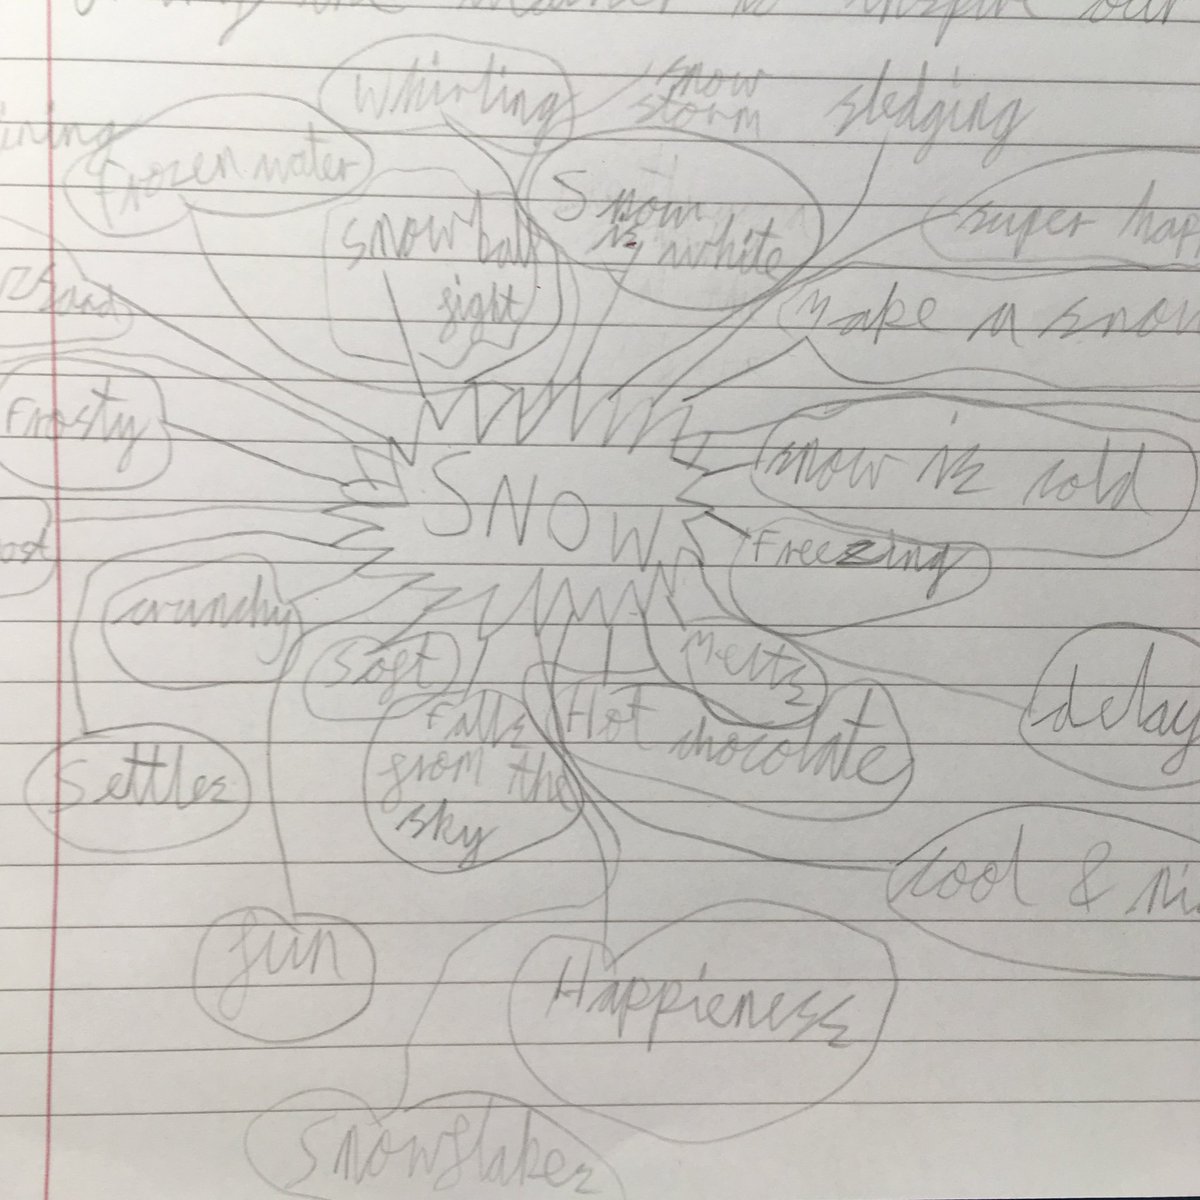 to inspire our
Whirling
snow
storm
sledging
ining
Frozen water
Snow ball
fight
Snow
is white
super hap
Make a snow
Frosty
SNOW
snow is cold
ost
Freezing
crunchy
Soft
Melts
delay
Settles
Falls
from the
sky
Hot chocolate
cool & ni
fun
Happieness
Snowflakes